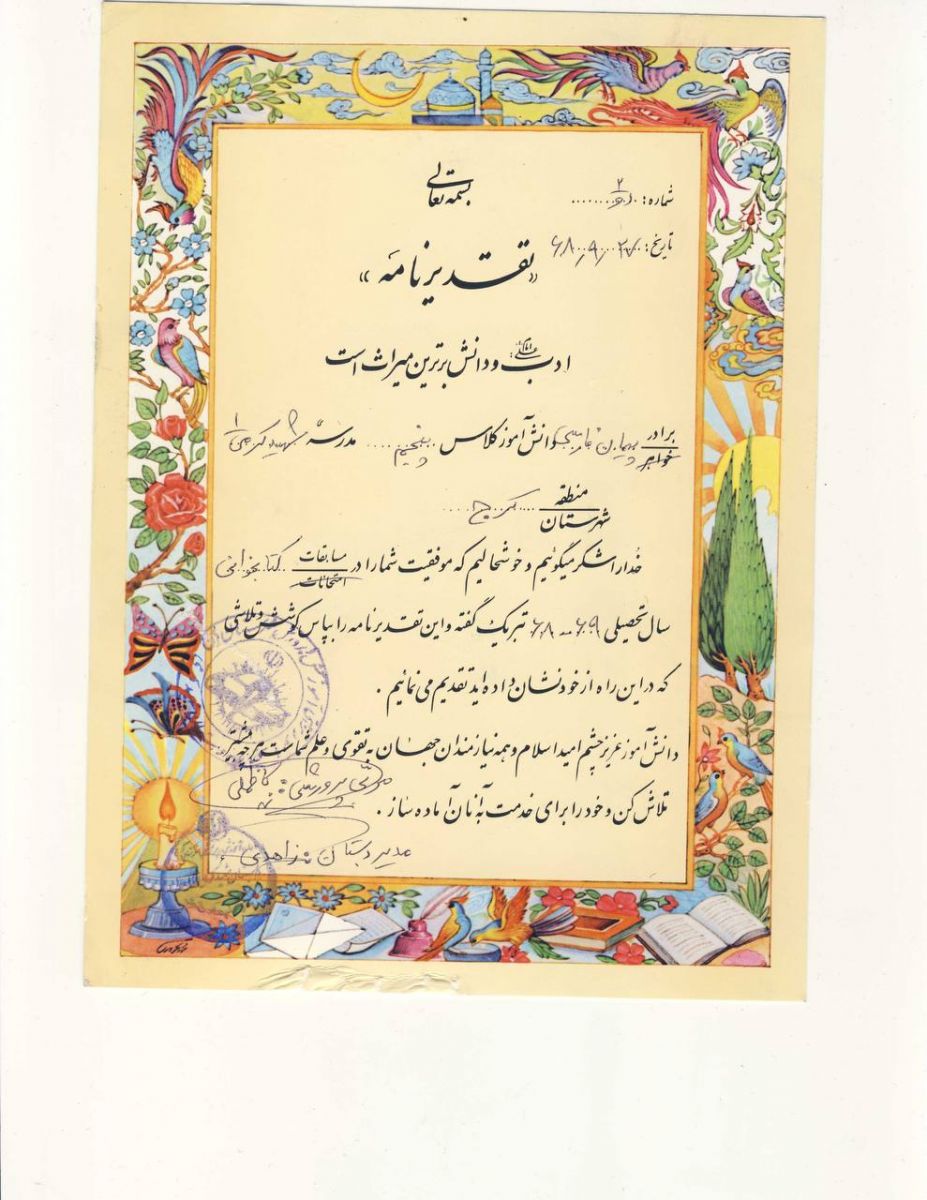 بسمه تعالی
شماره:
تاریخ: ۶۸/۹/۲۷
«تقدیرنامه»
ادب و دانش برترین میراث است
برادر
خواهر
پیمان دانش آموز کلاس پنجم مدرسه شهید کرمی ۱
منطقه
شهرستان
کرج
خدا را شکر میگوئیم و خوشحالیم که موفقیت شما را در مسابقات
امتحانات
کتابخوانی
سال تحصیلی ۶۹-۶۸ تبریک گفته و این تقدیرنامه را بپاس کوشش و تلاشی
که در این راه از خود نشان داده اید تقدیم می نمائیم .
دانش آموز عزیز چشم امید اسلام و همه نیازمندان جهان به تقوی و علم شماست هر چه بیشتر
تلاش کن و خود را برای خدمت به آنان آماده ساز .
مربی پرورشی: کاظمی
مدیر دبستان زاهدی